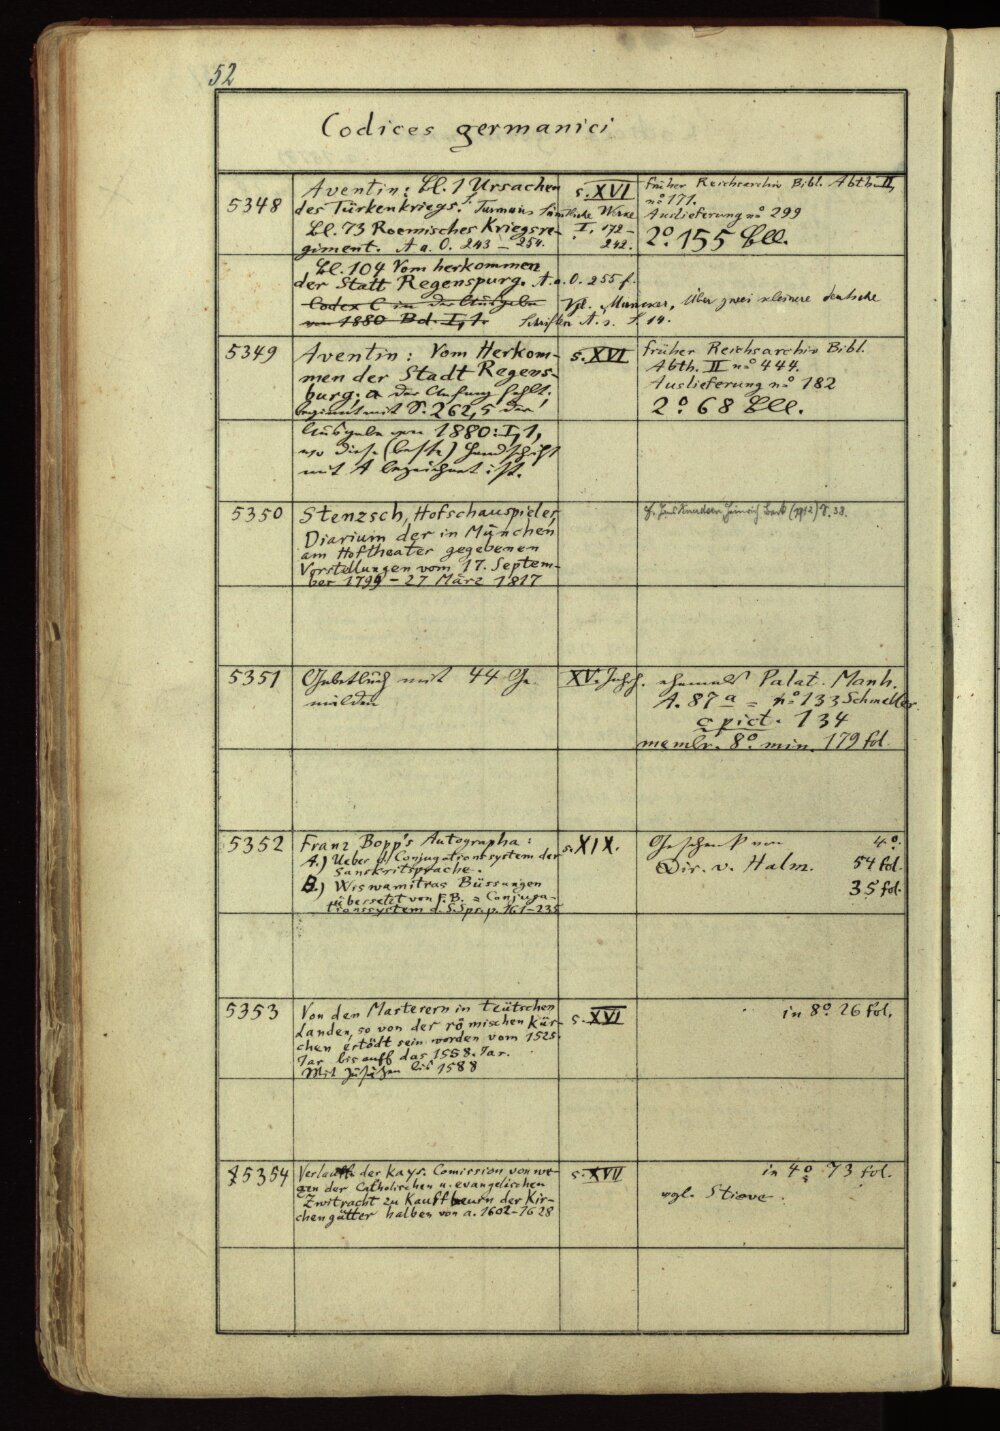 52
Codices germanici
5348
Aventin: Bl. 1 Ursachen
des Türkenkriegs. Turmairs sämtliche Werke
Bl. 73 Roemisches Kriegsre- I, 172-
giment. A. a. O. 243 – 254. 242.
s. XVI
früher Reichsarchiv Bibl. Abth. II
no 171.
Auslieferung no 299
2o. 155 Bll.
Bl. 104 Vom herkommen
der Statt Regenspurg. A. a. O. 255 f.
Codex C in der Ausgabe
von 1880 Bd. I, 1.
Vgl. Muncker, Über zwei kleinere deutsche
Schriften A.s. S. 14.
5349
Aventin: Vom Herkom-
men der Stadt Regens-
burg; der Anfang fehlt;
beginnt mit S. 262,5 der
Ausgabe von 1880: I,1,
wo diese (beste) Handschrift
mit A bezeichnet ist.
s. XVI
früher Reichsarchiv Bibl.
Abth. II no 444.
Auslieferung no 182
2o. 68 Bll.
5350
Stenzsch, Hofschauspieler,
Diarium der in München
am Hoftheater gegebenen
Vorstellungen vom 17. Septem-
ber 1799 – 27 März 1817
Heinrich Beck (1912) S. 38.
5351
Gebetbuch mit 44 Ge-
mälden
XV. Jahrh.
ehemals Palat. Manh.
A. 87 a = no 133 Schmeller
c pict. 134
membr. 8o. min. 179 fol.
5352
Franz Bopp's Autographa:
A.) Ueber d/ Conjugationssystem der
Sanskritsprache.
B.) Wiswamitras Büssungen
übersetzt von F. B. = Conjuga-
tionssystem d. S.Spr. p. 161–235
s. XIX.
Geschenk von
Dir. v. Halm.
4o.
54 fol.
35 fol.
5353
Von den Marterern in teütschen
Landen, so von der römischen Kür-
chen ertödt sein worden vom 1525.
Jar bis auff das 1558. Jar.
Mit Zusätzen bis 1588
s. XVI
in 8o. 26 fol.
5354
Verlauff der Kays. Comission von we-
gen der Catholischen u. evangelischen
Zwitracht zu Kauffbeurn der Kir-
chengütter halben von a. 1602–1628
s. XVII
in 4o 73 fol.
vgl. Stieve.